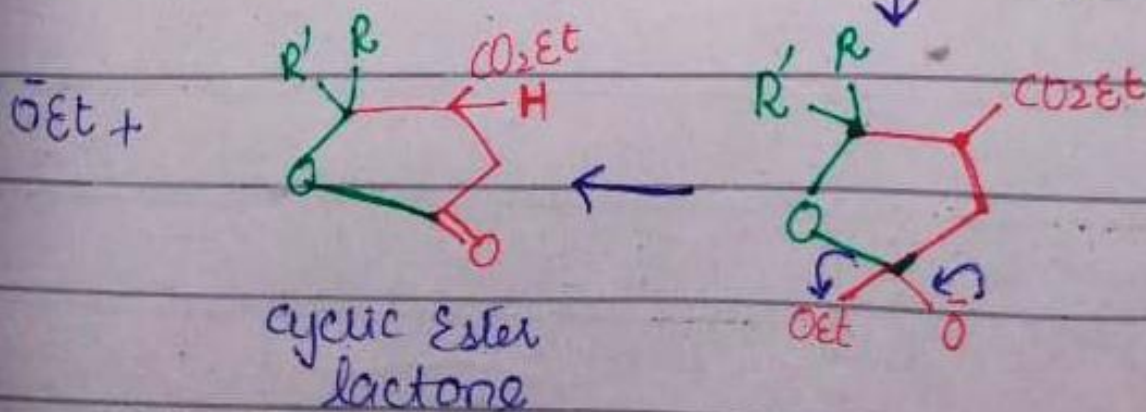 R' R CO₂Et
H
ŌEt +
O
O
cyclic Ester
lactone
R' R
CO2Et
O
OEt Ō